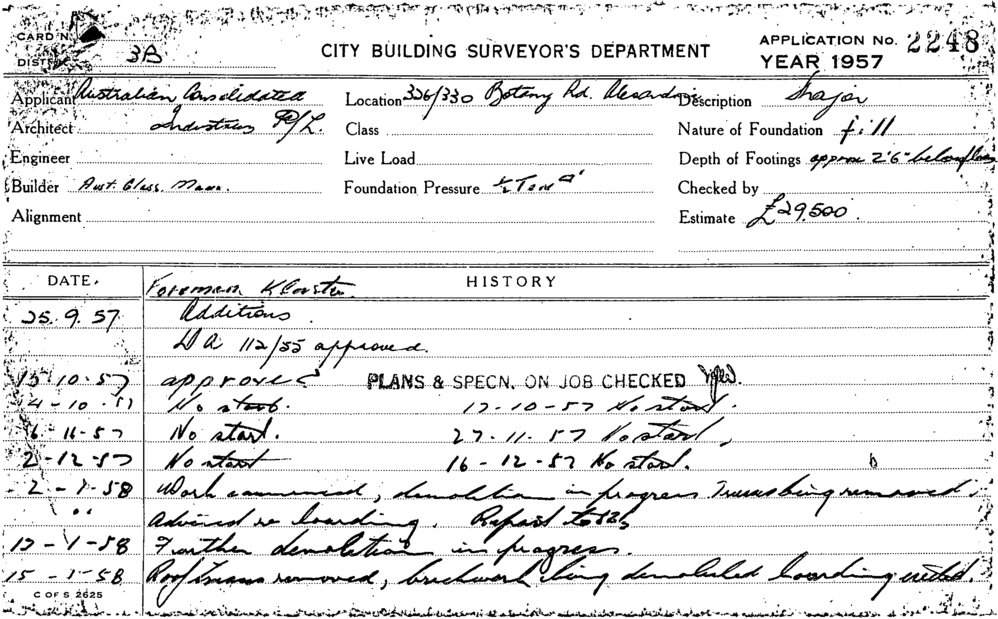 CARD No.
DIST. 3B
CITY BUILDING SURVEYOR'S DEPARTMENT
APPLICATION No. 2248
YEAR 1957
Applicant Australian Consolidated
Location 326/330 Botany Rd. Alexandria
Description Major
Architect Industries P/L.
Class
Nature of Foundation fill
Engineer
Live Load
Depth of Footings approx 2'6" below floor
Builder Aust. Glass. Manu.
Foundation Pressure ½ Ton
Checked by
Alignment
Estimate £29,500
DATE.
HISTORY
Foreman
25.9.57 Additions.
DA 112/55 approved.
15-10-57 approved PLANS & SPECN. ON JOB CHECKED
4-10-57 No start. 17-10-57 No start.
6-11-57 No start. 27-11-57 No start,
2-12-57 No start 16-12-57 No start.
2-1-58 Work commenced, demolition in progress Truss being removed.
" Advised re hoarding.
17-1-58 Further demolition in progress.
15-1-58 Roof Truss removed, brickwork being demolished hoarding erected.
C OF S 2625